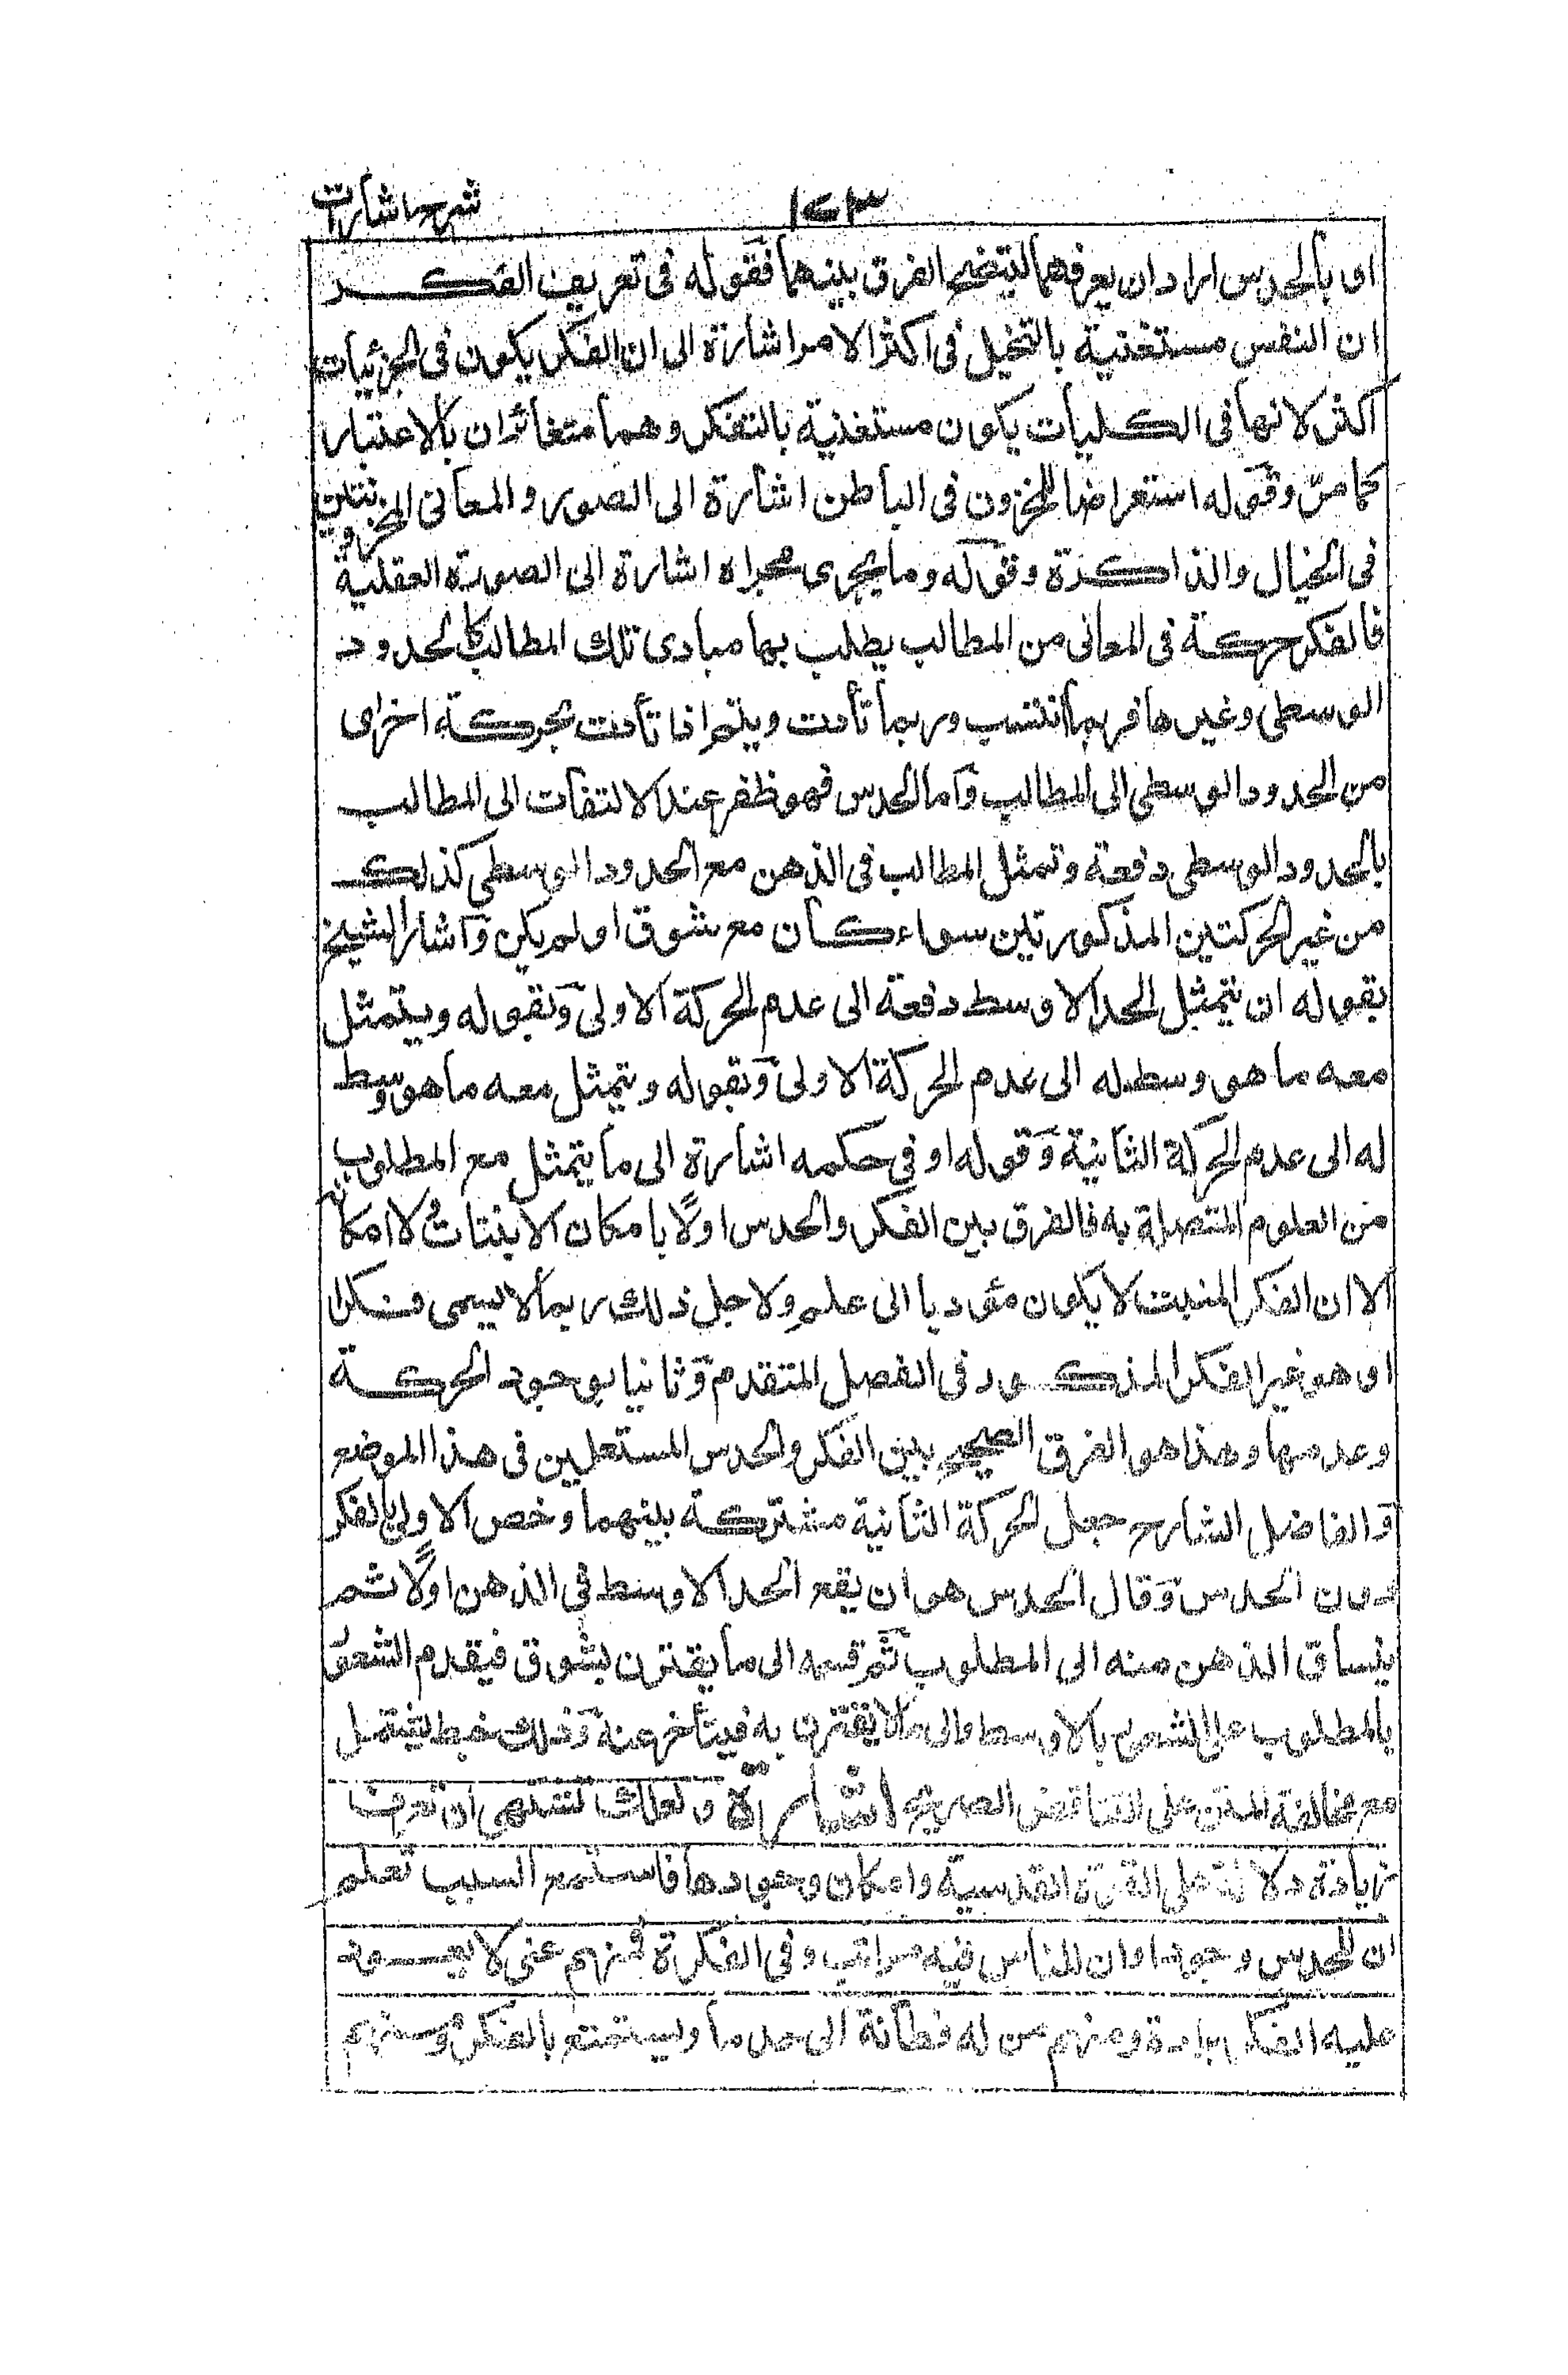 شرح اشارات
١٢٣
او بالحدس اراد ان يعرفهما ليتضح الفرق بينهما فقوله فى تعريف الفكر
ان النفس مستغنية بالتخيل فى اكثر الامر اشارة الى ان الفكر يكون فى الجزئيات
اكثر لانها فى الكليات يكون مستغذية بالتفكر وهما متغائران بالاعتبار
كما مرّ وقوله استعراضا للمخزون فى الباطن اشارة الى الصور والمعانى المخزونتين
فى الخيال والذاكرة وقوله وما يجرى مجراه اشارة الى الصورة العقلية
فالفكر حركة فى المعانى من المطالب يطلب بها مبادى تلك المطالب كالحدود
الوسطى وغيرها فربما انبتت وربما تأدت ويتم اذا تأدت بحركة اخرى
من الحدود الوسطى الى المطالب واما الحدس فهو ظفر عند الالتفات الى المطالب
بالحدود الوسطى دفعة وتمثل المطالب فى الذهن مع الحدود الوسطى كذلك
من غير الحركتين المذكورتين سواء كان مع شوق او لم يكن واشار الشيخ
بقوله ان يتمثل الحد الاوسط دفعة الى عدم الحركة الاولى وبقوله ويتمثل
معه ما هو وسط له الى عدم الحركة الاولى وبقوله ويتمثل معه ما هو وسط
له الى عدم الحركة الثانية وقوله او فى حكمه اشارة الى ما يتمثل مع المطلوب
من العلوم المتصلة به فالفرق بين الفكر والحدس اولًا بامكان الانبتات ولا امكا
الا ان الفكر المنبت لا يكون مؤديا الى علم ولاجل ذلك ربما لا يسمى فكرا
او هو غير الفكر المذكور فى الفصل المتقدم وثانيا بوجود الحركة
وعدمها وهذا هو الفرق الصحيح بين الفكر والحدس المستعملين فى هذا الموضع
والفاضل الشارح جعل الحركة الثانية مشتركة بينهما وخص الاولى بالفكر
دون الحدس وقال الحدس هو ان يقع الحد الاوسط فى الذهن اولًا ثم
ينساق الذهن منه الى المطلوب ثم قسمه الى ما يقترن بشوق فيقدم الشعور
بالمطلوب على الشعور بالاوسط والى ما لا يقترن به فيتأخر عنه وذلك خبط يشتمل
مع مخالفة المتن على التناقض الصريح اشارة ولعلك تشتهى ان تعرف
زيادة دلالة على القوة القدسية وامكان وجودها فاستمع السبب تعلم
ان للحدس وجودا وان للناس فيه مراتب وفى الفكرة فمنهم غبى لا يعود
عليه الفكر بزادة ومنهم من له فطانة الى حد ما ويستمتع بالفكر ومنهم